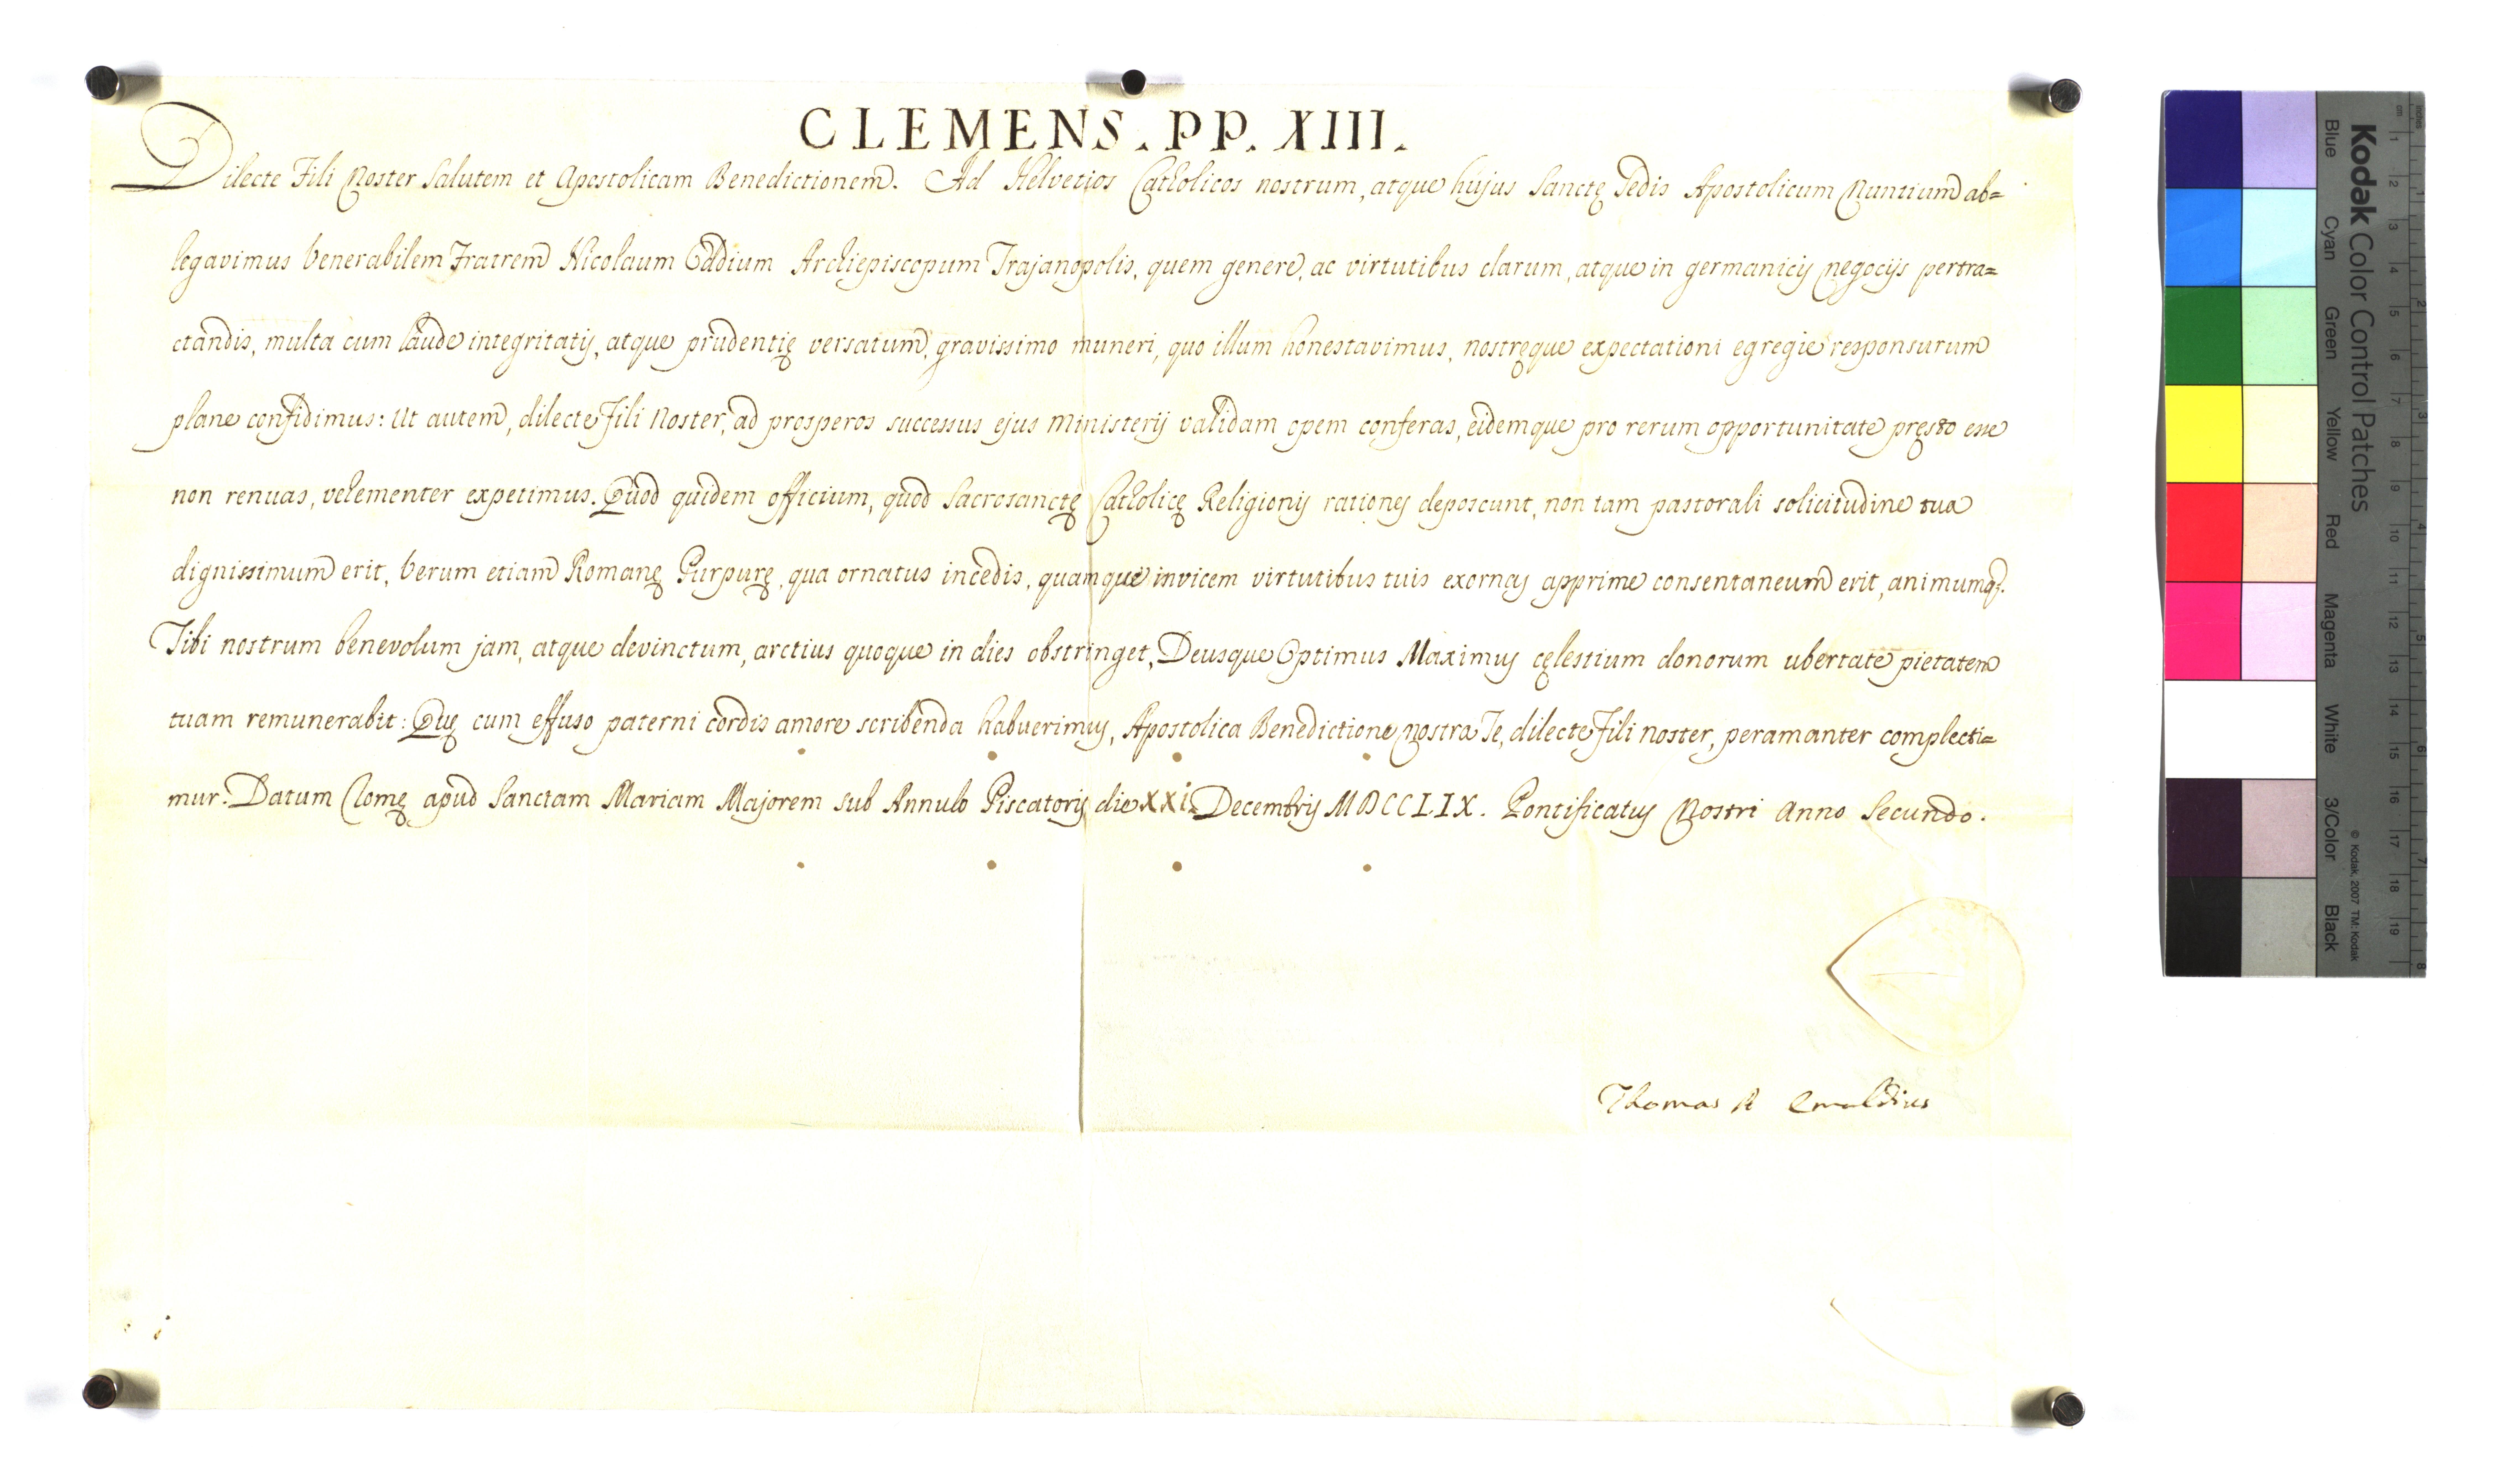 CLEMENS. PP. XIII.
Dilecte Fili Noster Salutem et Apostolicam Benedictionem. Ad Helvetios Catholicos nostrum, atque hujus Sanctę Sedis Apostolicum Nuntium ab=
legavimus Venerabilem Fratrem Nicolaum Oddium Archiepiscopum Trajanopolis, quem genere, ac virtutibus clarum, atque in germanicis negocijs pertra=
ctandis, multa cum laude integritatis, atque prudentię versatum, gravissimo muneri, quo illum honestavimus, nostręque expectationi egregie responsurum
plane confidimus: Ut autem, dilecte Fili Noster, ad prosperos successus ejus ministerij validam opem conferas, eidemque pro rerum opportunitate pręsto esse
non renuas, vehementer expetimus. Quod quidem officium, quod Sacrosanctę Catholicę Religionis rationes deposcunt, non tam pastorali solicitudine tua
dignissimum erit, Verum etiam Romanę Purpurę, qua ornatus incedis, quamque invicem virtutibus tuis exornas apprime consentaneum erit, animumq;
Tibi nostrum benevolum jam, atque devinctum, arctius quoque in dies obstringet, Deusque Optimus Maximus cęlestium donorum ubertate pietatem
tuam remunerabit: Quę cum effuso paterni cordis amore scribenda habuerimus, Apostolica Benedictione nostra Te, dilecte Fili noster, peramanter complecti=
mur. Datum Romę apud Sanctam Mariam Majorem sub Annulo Piscatoris die XXI. Decembris MDCCLIX. Pontificatus Nostri Anno Secundo.
Thomas A Emaldius
Kodak Color Control Patches
Blue Cyan Green Yellow Red Magenta White 3/Color Black
© Kodak, 2007 TM: Kodak
cm 1 2 3 4 5 6 7 8 9 10 11 12 13 14 15 16 17 18 19
inches 1 2 3 4 5 6 7 8